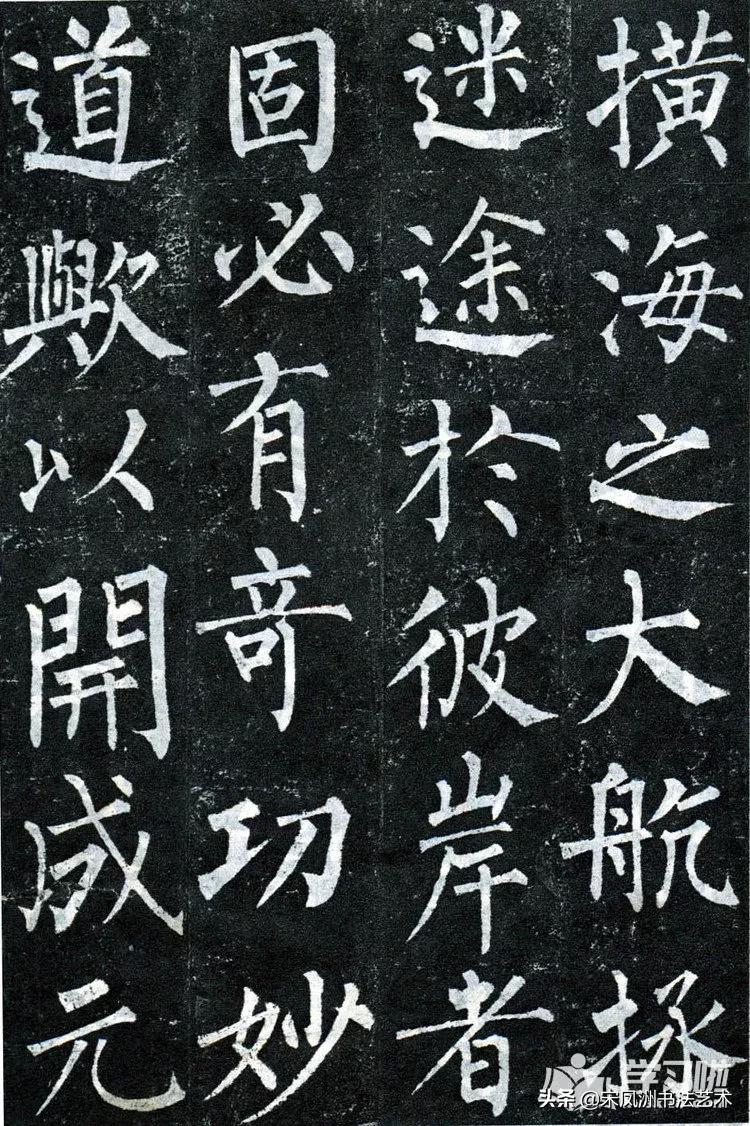 橫海之大航拯
迷途於彼岸者
固必有奇功妙
道歟以開成元
学习啦
头条 @宋凤洲书法艺术